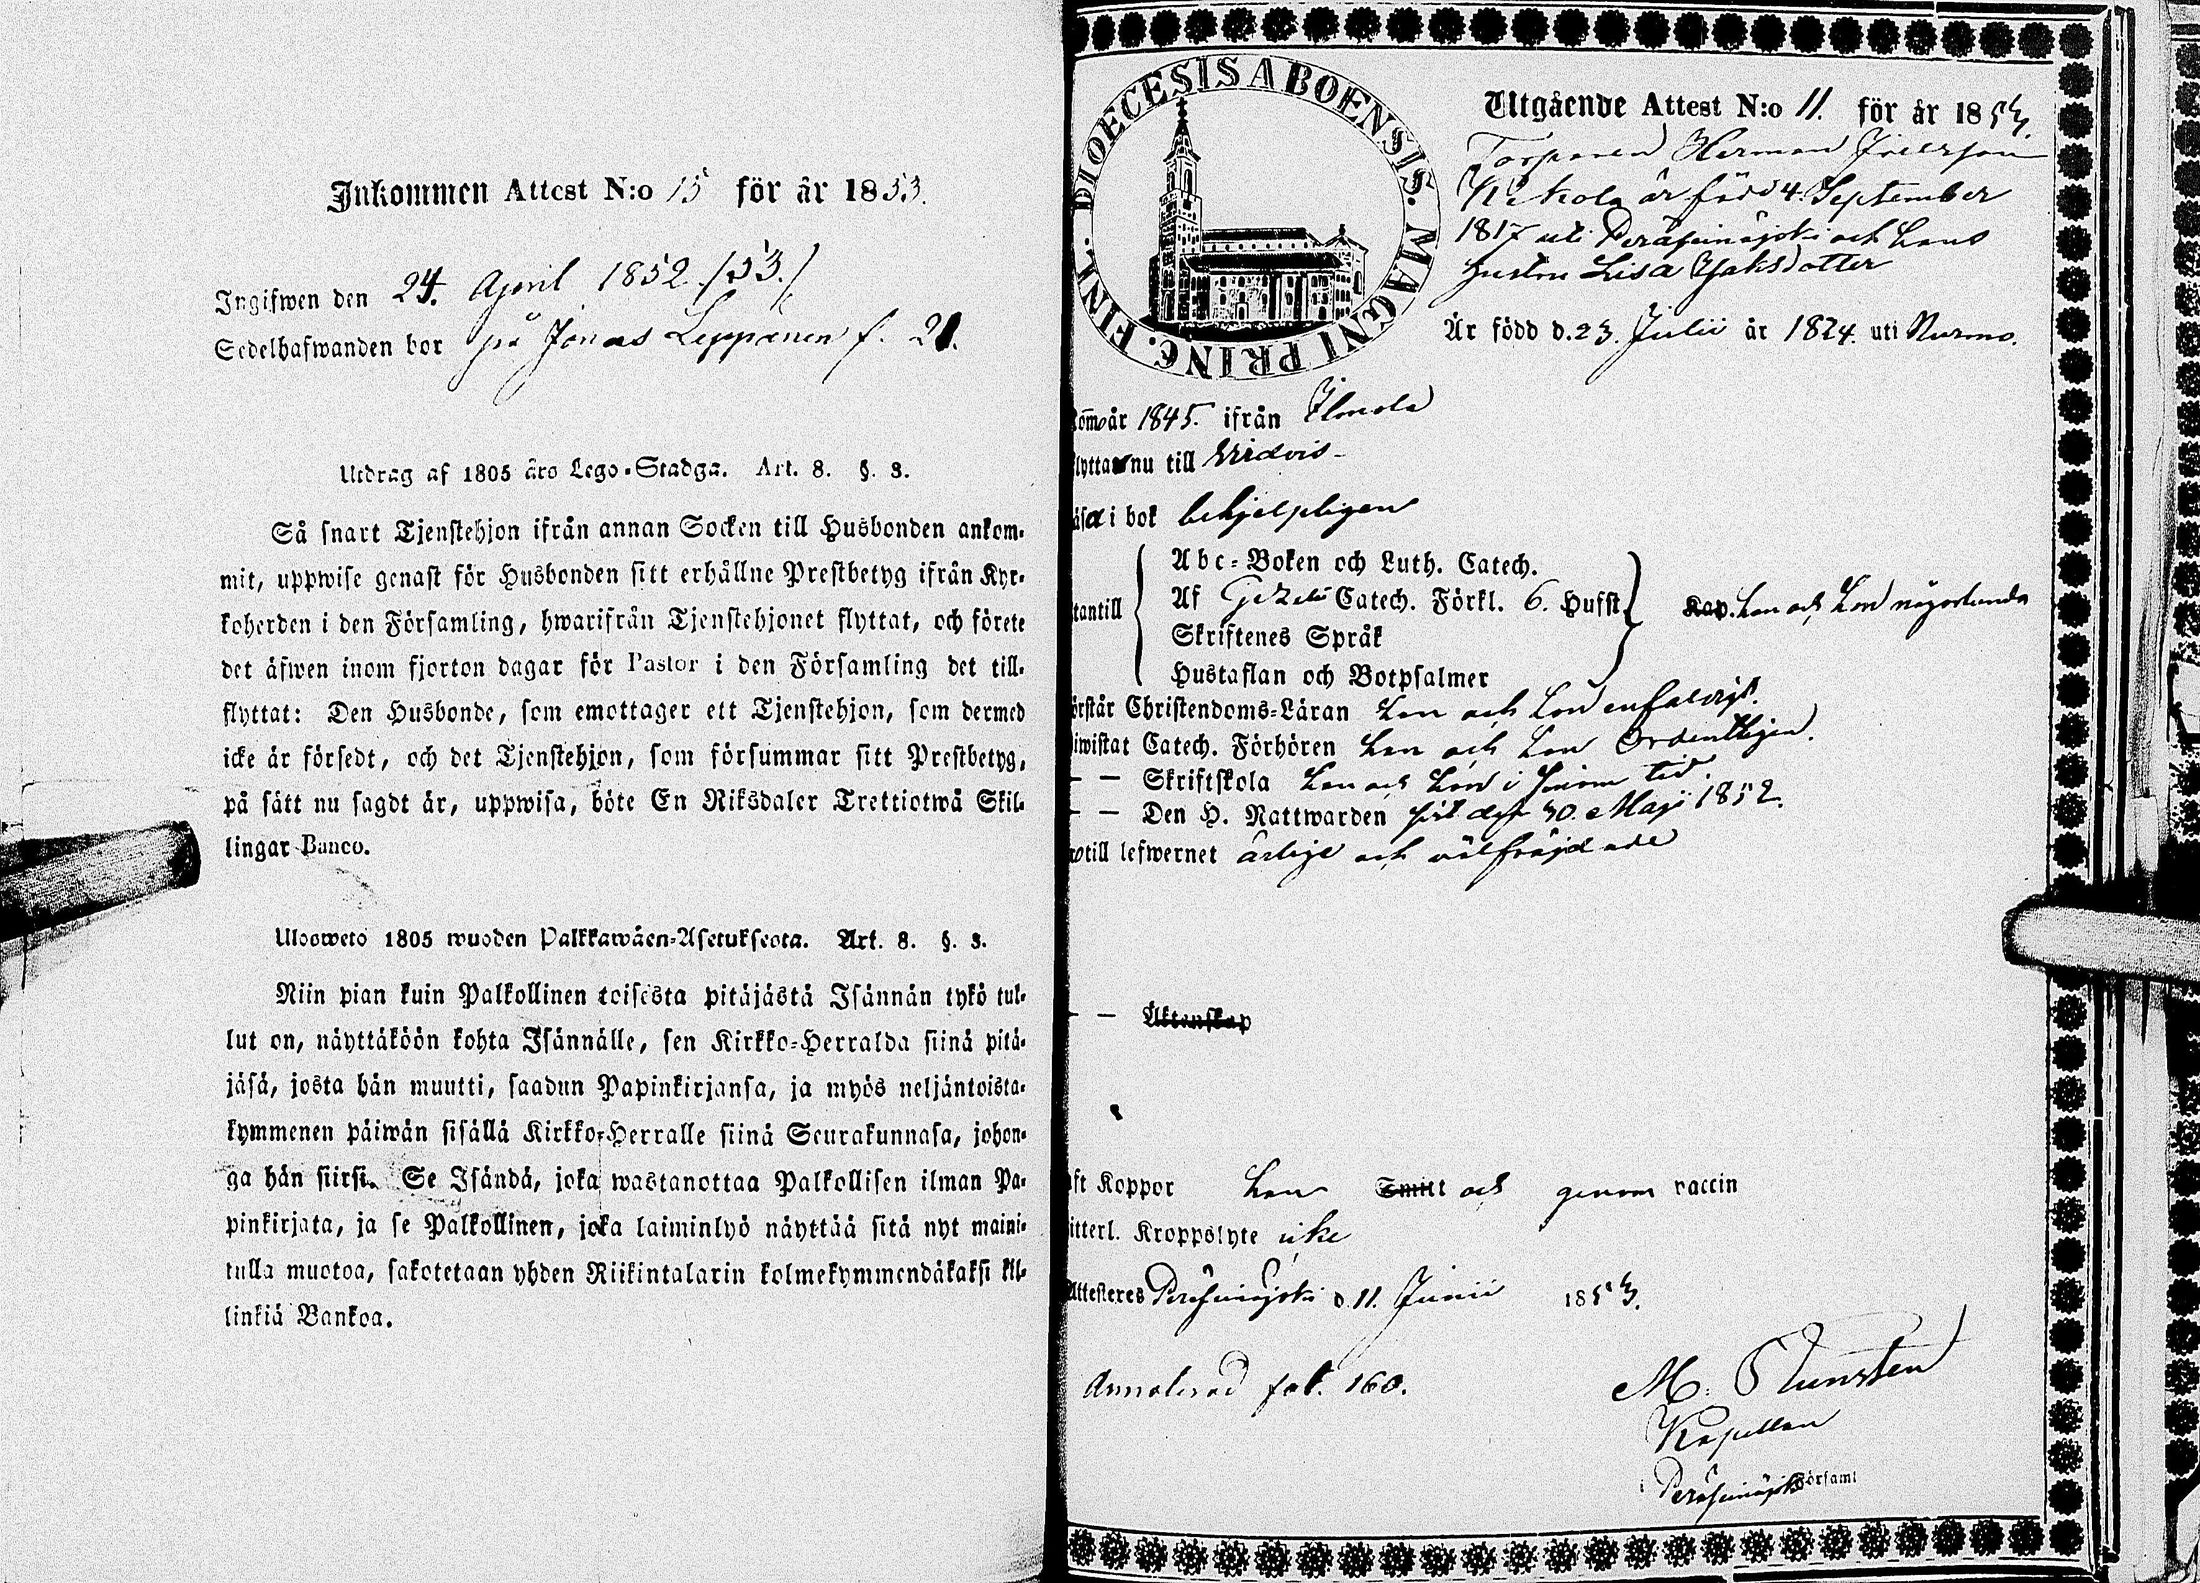 Inkommen Attest N:o 15 för år 1853.
Ingifwen den 24. April 1852./53./
Sedelhafwanden bor på Jonas Leppänen f. 21.
Utdrag af 1805 års Lego-Stadga. Art. 8. §. 3.
Så snart Tjenstehjon ifrån annan Socken till Husbonden ankom-
mit, uppwise genast för Husbonden sitt erhållne Prestbetyg ifrån Kyr-
koherden i den Församling, hwarifrån Tjenstehjonet flyttat, och förete
det äfwen inom fjorton dagar för Pastor i den Församling det till-
flyttat: Den Husbonde, som emottager ett Tjenstehjon, som dermed
icke är försedt, och det Tjenstehjon, som försummar sitt Prestbetyg,
på sätt nu sagdt är, uppwisa, böte En Riksdaler Trettiotwå Skil-
lingar Banco.
Uloswetо 1805 wuoden Palkkawäen-Asetuksesta. Art. 8. §. 3.
Niin pian kuin Palkollinen toisesta pitäjästä Isännän tykö tul-
lut on, näyttäköön kohta Isännälle, sen Kirkko-Herralda siinä pitä-
jäsä, josta hän muutti, saadun Papinkirjansa, ja myös neljäntoista-
kymmenen päiwän sisällä Kirkko-Herralle siinä Seurakunnasa, johon-
ga hän siirsi. Se Isändä, joka wastanottaa Palkollisen ilman Pa-
pinkirjata, ja se Palkollinen, joka laiminlyö näyttää sitä nyt maini-
tulla muotoa, sakotetaan yhden Riikintalarin kolmekymmendäkaksi kil-
linkiä Bankoa.
DIOECESIS ABOENSIS. MAGNI PRINC. FINL.
Utgående Attest N:o 11. för år 1853.
Torparen Herman
är född 4. September
1817 uti Peräseinäjoki och hans
hustru Lisa Isaksdotter
Är född d. 23. Julii år 1824. uti Nurmo.
kom år 1845. ifrån Ilmola
flyttar nu till
läsa i bok behjelpligen
Abc-Boken och Luth. Catech.
utantill Af Gezelii Catech. Förkl. 6. Hufst. Kap. han och hon någorlunda
Skriftenes Språk
Hustaflan och Botpsalmer
förstår Christendoms-Läran han och hon enfaldigt.
biwistat Catech. Förhören han och hon Ordentligen.
– – Skriftskola han och hon i sinom tid
– – Den H. Nattwarden sist den 30. Maji 1852.
till lefwernet ärlige och välfrejdade
– – Äktenskap
haft Koppor han Smitt och genom vaccin
ytterl. Kroppslyte icke
Attesteres Peräseinäjoki d. 11. Junii 1853.
Annoterad fol. 160.
M. Tunsten
Kapellan
i Peräseinäjoki Församl